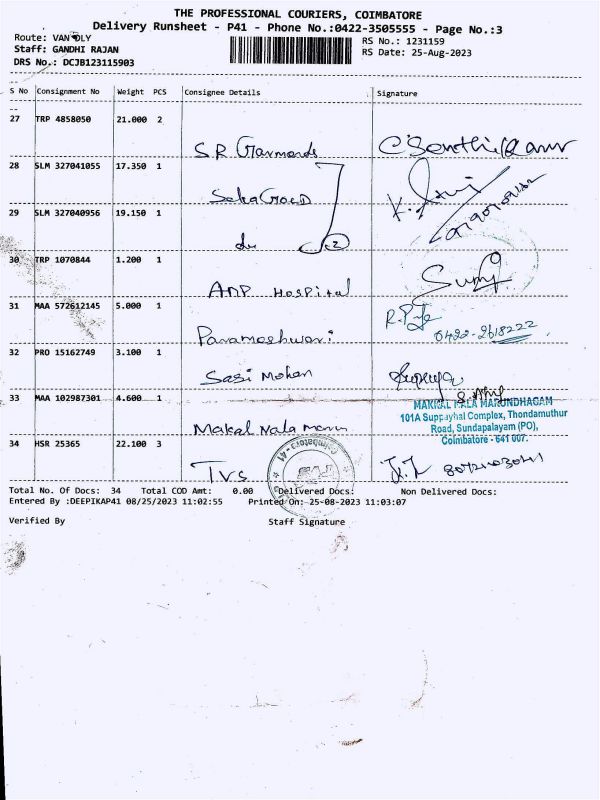 THE PROFESSIONAL COURIERS, COIMBATORE
Delivery Runsheet - P41 - Phone No.:0422-3505555 - Page No.:3
Route: VAN DLY
RS No.: 1231159
Staff: GANDHI RAJAN
RS Date: 25-Aug-2023
DRS No.: DCJB123115903
S No Consignment No Weight PCS Consignee Details Signature
27 TRP 4858050 21.000 2
SR Garments
28 SLM 327041055 17.350 1
29 SLM 327040956 19.150 1
do 2
30 TRP 1070844 1.200 1
AMP Hospital
31 MAA 572612145 5.000 1
Parameshwari
0422-2618222
32 PRO 15162749 3.100 1
Sasi Mohan
33 MAA 102987301 4.600 1
Makal Nala
MAKKAL NALA MARUNDHAGAM
101A Suppayhal Complex, Thondamuthur
Road, Sundapalayam (PO),
Coimbatore - 641 007.
34 HSR 25365 22.100 3
TVS
Total No. Of Docs: 34 Total COD Amt: 0.00 Delivered Docs: Non Delivered Docs:
Entered By :DEEPIKAP41 08/25/2023 11:02:55 Printed On: 25-08-2023 11:03:07
Verified By Staff Signature